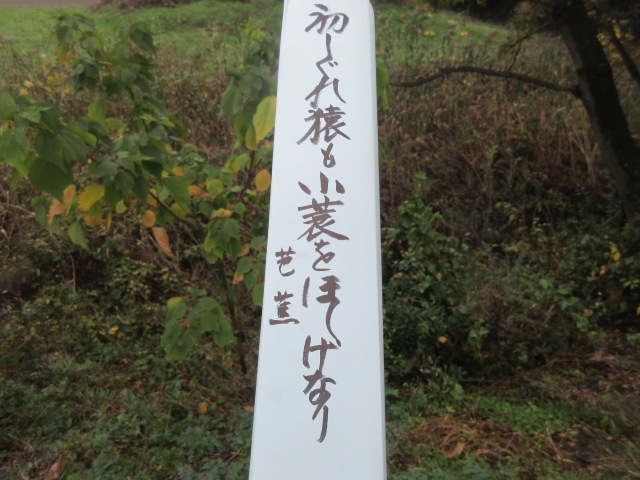 初しぐれ猿も小蓑をほしげなり
芭蕉